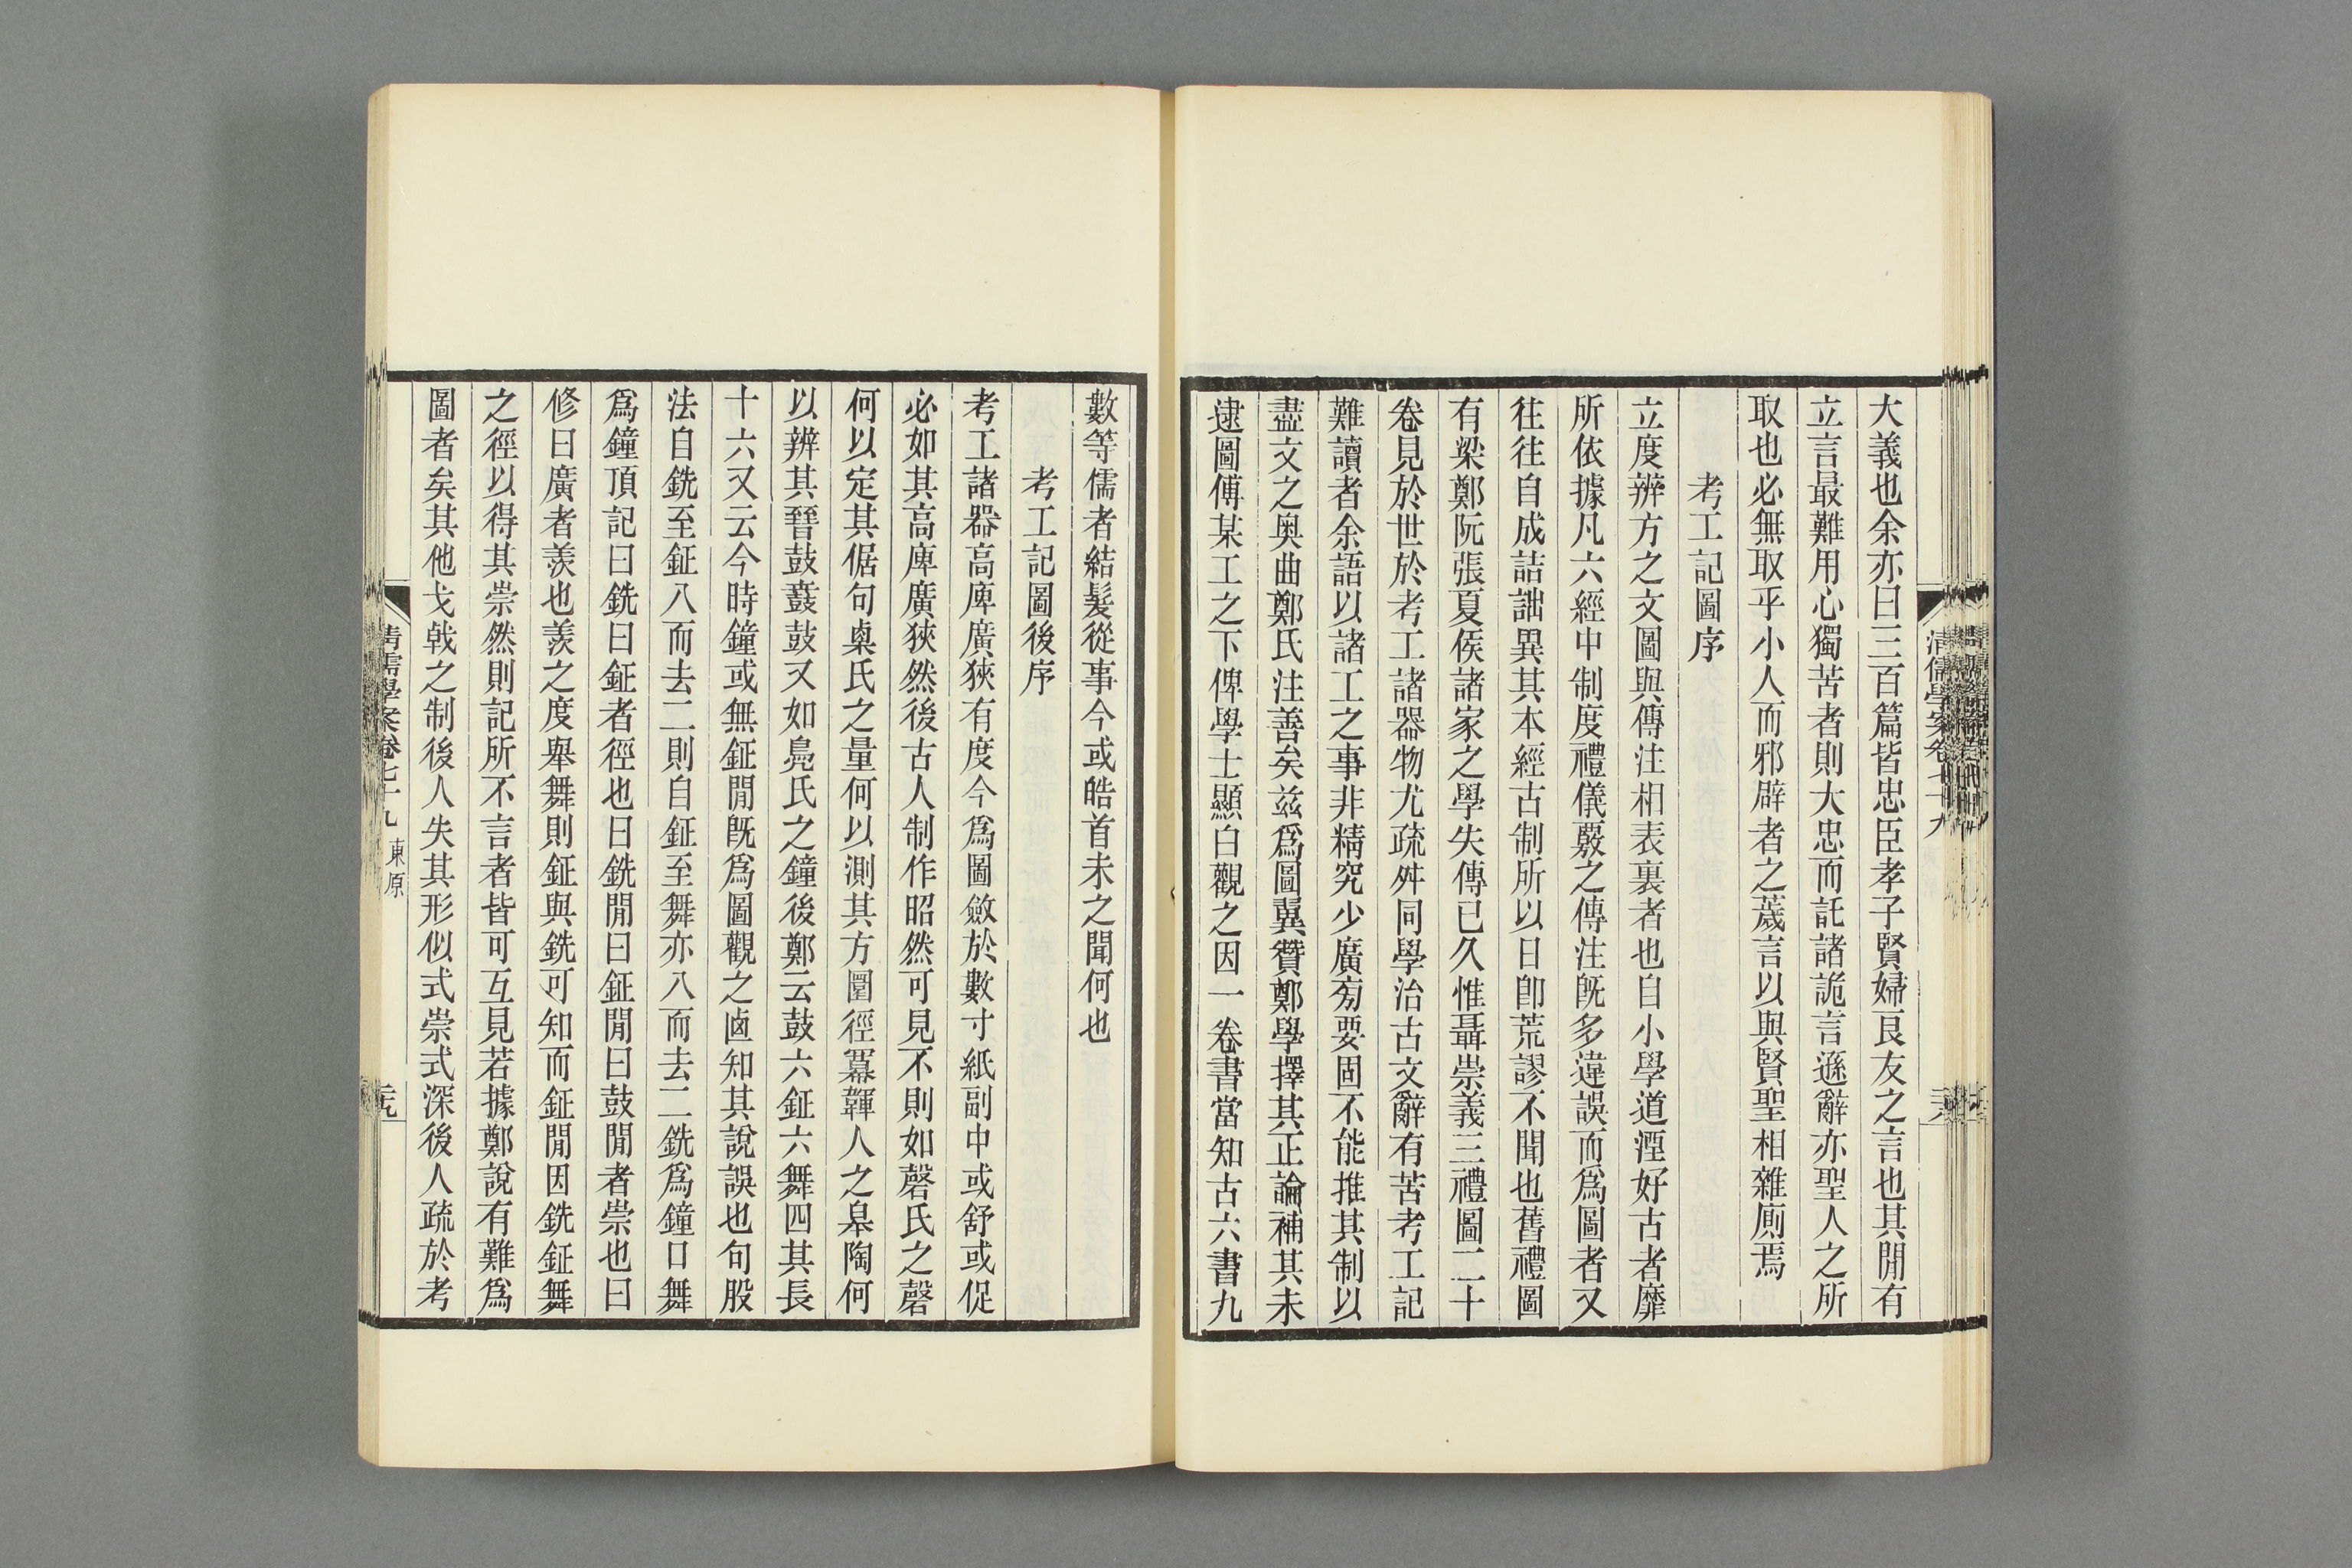 大義也余亦曰三百篇皆忠臣孝子賢婦良友之言也其閒有
立言最難用心獨苦者則大忠而託諸詭言遜辭亦聖人之所
取也必無取乎小人而邪辟者之薉言以與賢聖相雜廁焉
考工記圖序
立度辨方之文圖與傳注相表裏者也自小學道湮好古者靡
所依據凡六經中制度禮儀覈之傳注旣多違誤而爲圖者又
往往自成詰詘異其本經古制所以日卽荒謬不聞也舊禮圖
有梁鄭阮張夏侯諸家之學失傳已久惟聶崇義三禮圖二十
卷見於世於考工諸器物尤疏舛同學治古文辭有苦考工記
難讀者余語以諸工之事非精究少廣旁要固不能推其制以
盡文之奧曲鄭氏注善矣茲爲圖翼贊鄭學擇其正論補其未
逮圖傅某工之下俾學士顯白觀之因一卷書當知古六書九
清儒學案卷七十九
數等儒者結髮從事今或皓首未之聞何也
考工記圖後序
考工諸器高庳廣狹有度今爲圖斂於數寸紙副中或舒或促
必如其高庳廣狹然後古人制作昭然可見不則如磬氏之磬
何以定其倨句㮚氏之量何以測其方圜徑冪韗人之皋陶何
以辨其晉鼓鼖鼓又如鳧氏之鐘後鄭云鼓六鉦六舞四其長
十六又云今時鐘或無鉦閒旣爲圖觀之𠧟知其說誤也句股
法自銑至鉦八而去二則自鉦至舞亦八而去二銑爲鐘口舞
爲鐘頂記曰銑曰鉦者徑也曰銑閒曰鉦閒曰鼓閒者崇也曰
修曰廣者羨也羨之度舉舞則鉦與銑可知而鉦閒因銑鉦舞
之徑以得其崇然則記所不言者皆可互見若據鄭說有難爲
圖者矣其他戈戟之制後人失其形似式崇式深後人疏於考
清儒學案卷七十九 東原 二九